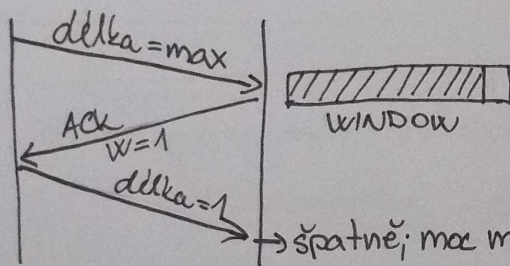 délka = max
WINDOW
ACK
W=1
délka=1
→ špatně; moc m